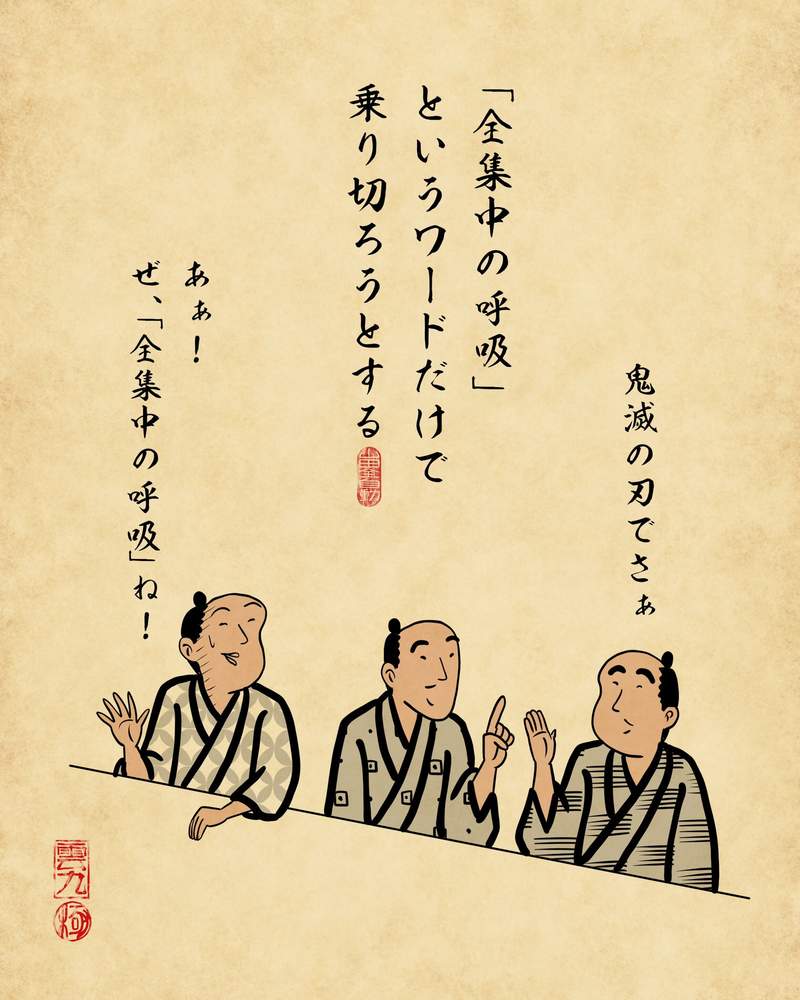 「全集中の呼吸」
というワードだけで
乗り切ろうとする
鬼滅の刃でさぁ
あぁ！
ぜ、「全集中の呼吸」ね！